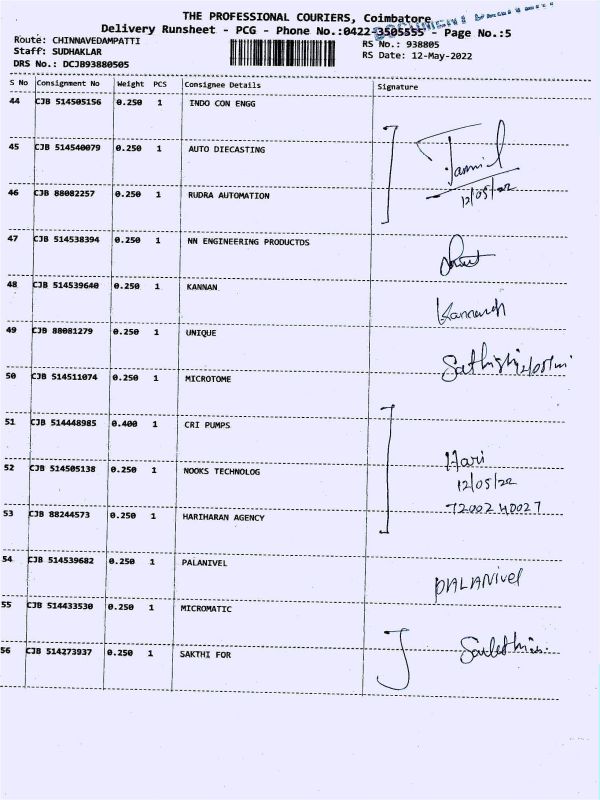 THE PROFESSIONAL COURIERS, Coimbatore
Delivery Runsheet - PCG - Phone No.:0422-3505555 - Page No.:5
Route: CHINNAVEDAMPATTI
Staff: SUDHAKLAR
DRS No.: DCJB93880505
RS No.: 938805
RS Date: 12-May-2022
S No Consignment No Weight PCS Consignee Details Signature
44 CJB 514505156 0.250 1 INDO CON ENGG
45 CJB 514540079 0.250 1 AUTO DIECASTING
12/05/22
46 CJB 88082257 0.250 1 RUDRA AUTOMATION
47 CJB 514538394 0.250 1 NN ENGINEERING PRODUCTDS
48 CJB 514539640 0.250 1 KANNAN
49 CJB 88081279 0.250 1 UNIQUE
50 CJB 514511074 0.250 1 MICROTOME
51 CJB 514448985 0.400 1 CRI PUMPS
Hari
52 CJB 514505138 0.250 1 NOOKS TECHNOLOG
12/05/22
7200240027
53 CJB 88244573 0.250 1 HARIHARAN AGENCY
54 CJB 514539682 0.250 1 PALANIVEL
PALANivel
55 CJB 514433530 0.250 1 MICROMATIC
56 CJB 514273937 0.250 1 SAKTHI FOR